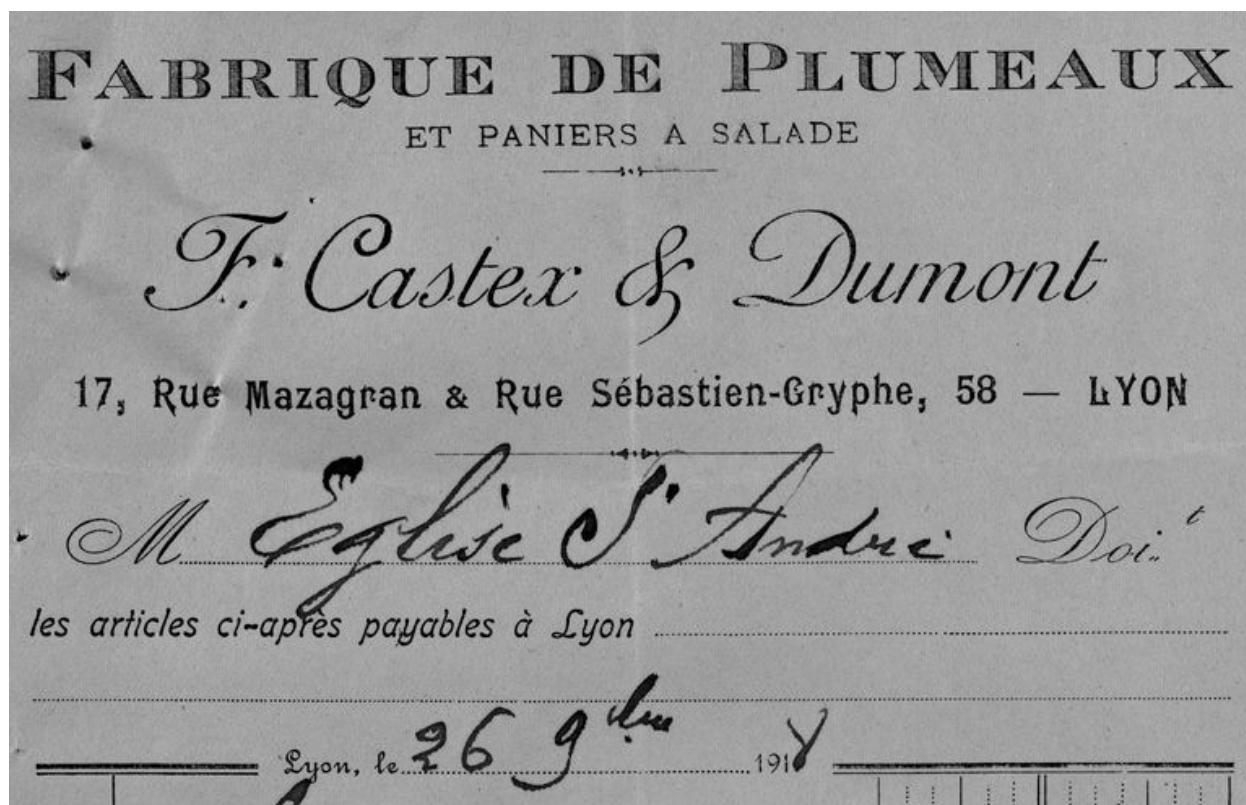 FABRIQUE DE PLUMEAUX
ET PANIERS A SALADE
F. Castex & Dumont
17, Rue Mazagran & Rue Sébastien-Gryphe, 58 — LYON
M Eglise St André Doit
les articles ci-après payables à Lyon
Lyon, le 26 9bre 1918